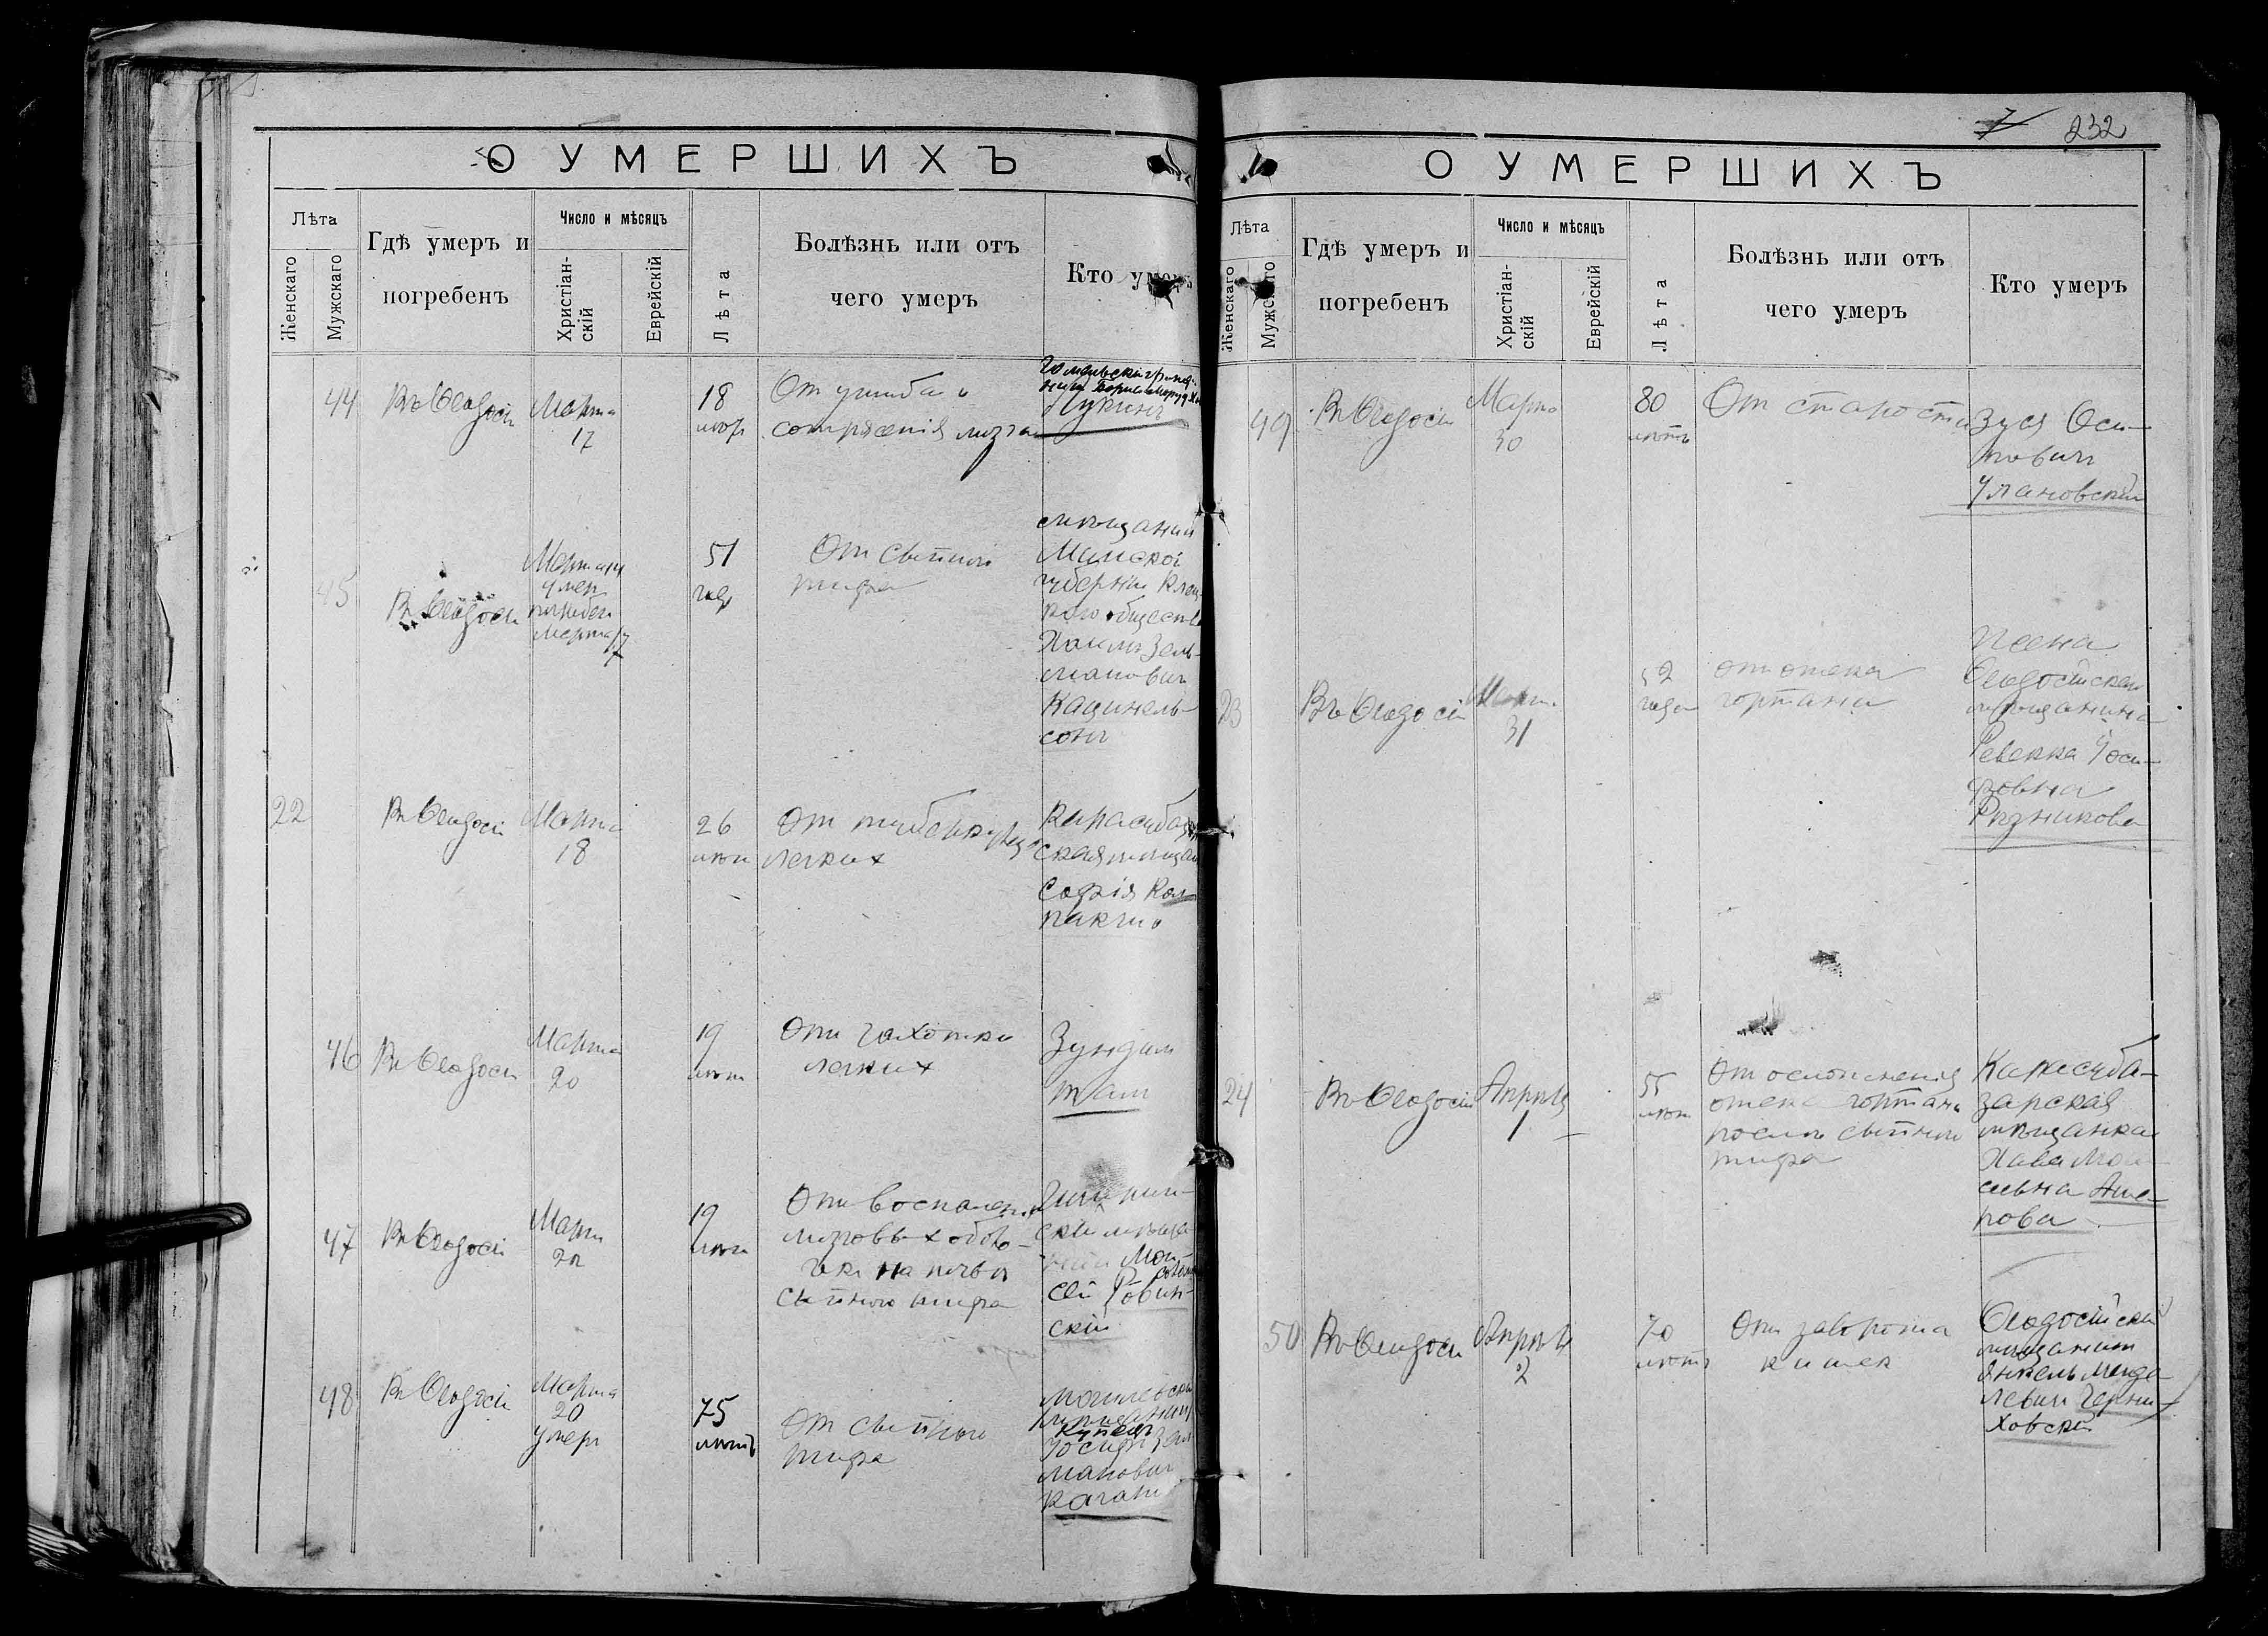 О УМЕРШИХЪ
Лѣта
Женскаго
Мужскаго
Гдѣ умеръ и
погребенъ
Число и мѣсяцъ
Христіан-
скій
Еврейскій
Лѣта
Болѣзнь или отъ
чего умеръ
Кто умеръ
44
Въ Ѳеодосіи
Марта
17
18
лѣтъ
От ушиба и
сотрясенія мозга
Борис
Цукинъ
45
Въ Ѳеодосіи
Марта 14
умер
погребен
Марта 17
51
год
От сыпного
тифа
мѣщанин
Минской
губерніи
общества
Хаимъ Зель-
манович
Каценель-
сонъ
22
Въ Ѳеодосіи
Марта
18
26
лѣт
От туберкулеза
легких
Карасубазар
ская мѣщан
Софія Кол
пакчи
46
Въ Ѳеодосіи
Марта
20
19
лѣт
От чахотки
легких
Зундел
Там
47
Въ Ѳеодосіи
Марта
20
19
лѣт
От воспаленія
мозговых оболо-
чек на почвѣ
сыпного тифа
скій мѣща
нин Мои-
сей Рабин-
скій
48
Въ Ѳеодосіи
Марта
20
умер
75
лѣтъ
От сыпного
тифа
Могилевскій
мѣщанин
купец
Іосиф Зал
манович
Каган
7 232
О УМЕРШИХЪ
Лѣта
Женскаго
Мужскаго
Гдѣ умеръ и
погребенъ
Число и мѣсяцъ
Христіан-
скій
Еврейскій
Лѣта
Болѣзнь или отъ
чего умеръ
Кто умеръ
49
Въ Ѳеодосіи
Марта
30
80
лѣтъ
От старости
Зуся Оси-
пович
Улановскій
23
Въ Ѳеодосіи
Март.
31
52
года
от отека
гортани
Жена
Ѳеодосійскаго
мѣщанина
Ревекка Іоси-
фовна
Рѣзникова
24
Въ Ѳеодосіи
Апрѣля
1
55
лѣт
От осложненія
отека гортани
послѣ сыпного
тифа
Карасуба-
зарская
мѣщанка
Хава Мои-
сеевна Аше-
рова
50
Въ Ѳеодосіи
Апрѣля
2
70
лѣтъ
От заворота
кишек
Ѳеодосійскій
мѣщанин
Янкель Менде-
левич Черни-
ховскій